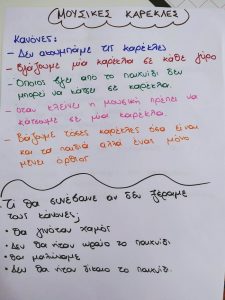 ΜΟΥΣΙΚΕΣ ΚΑΡΕΚΛΕΣ
Κανόνες:
- Δεν ακουμπάμε τις καρέκλες
- Βγάζουμε μία καρέκλα σε κάθε γύρο
- Όποιος βγει από το παιχνίδι δεν
μπορεί να κάτσει σε καρέκλα.
- όταν κλείνει η μουσική πρέπει να
κάτσουμε σε μία καρέκλα.
- Βάζουμε τόσες καρέκλες όσα είναι
και τα παιδιά αλλά ένας μόνο
μένει όρθιος
Τι θα συνέβαινε αν δεν ξέραμε
τους κανόνες;
• Θα γινόταν χαμός
• Δεν θα ήταν ωραίο το παιχνίδι
• θα μαλώναμε
• Δεν θα ήταν δίκαιο το παιχνίδι.